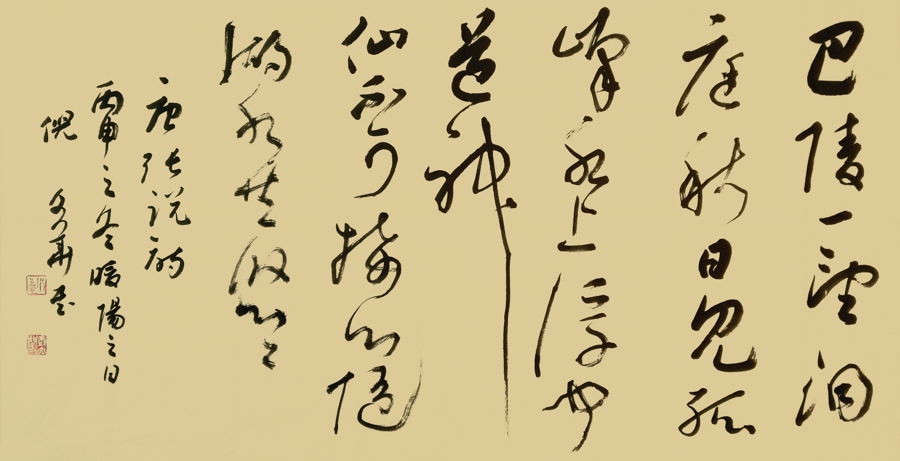 巴陵一望洞
庭秋日見孤
峰水上浮聞
道神
仙不可接心隨
湖水共悠心〻
唐張說詩
丙申之冬暖陽之日
倪